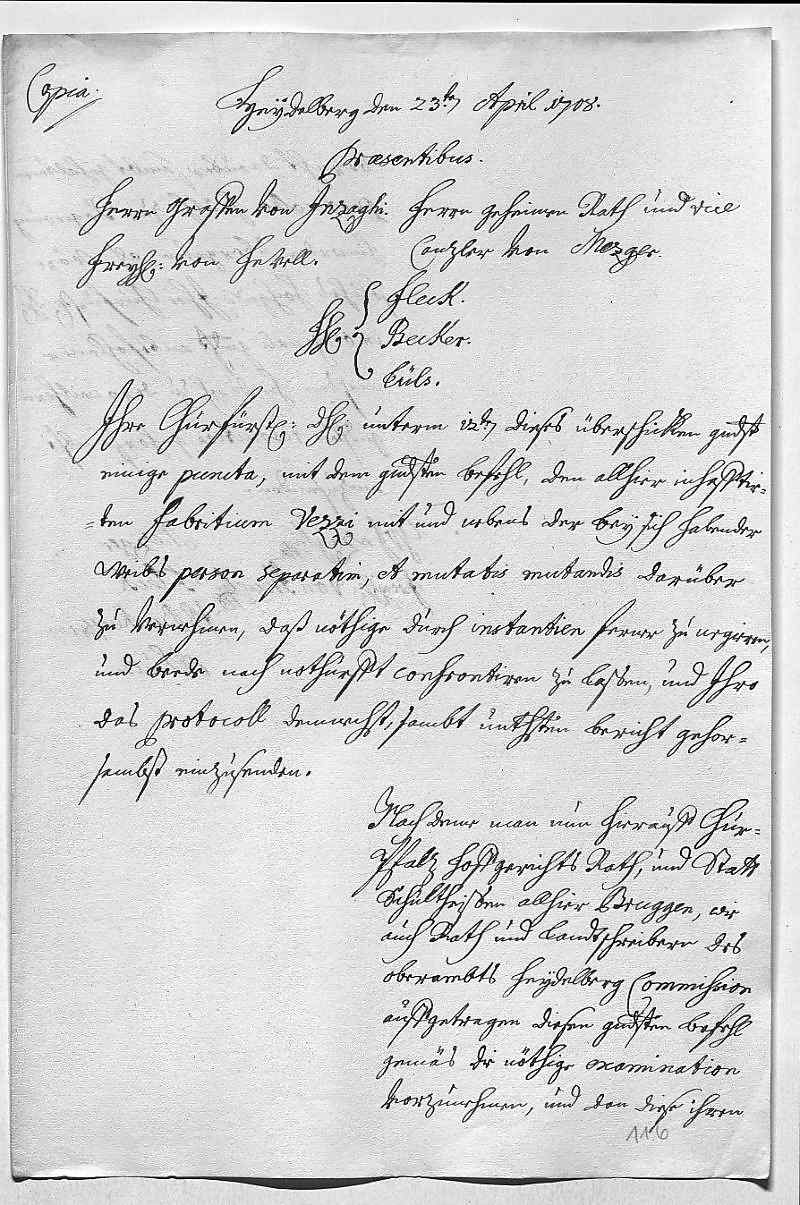 Copia.
Heydelberg den 23ten April 1708.
Præsentibus.
Herrn Graffen von Inzaghi. Herrn geheimen Rath und vice
Freyh: von Hevell. Canzler von Mezger.
HH: Fleck.
Becker.
Cüls.
Ihre Churfürstl: Dhl: unterm 12ten dieses überschicken gndst
einige puncta, mit dem gndsten befehl, den allhier inhafftir-
-ten Fabritium Vezzi mit und nebens der bey sich habender
Weibs person separatim, et mutatis mutandis darüber
zu vernehmen, daß nöthige durch instantien ferner zu
und beede nach nothurfft confrontiren zu lassen, und Ihro
das protocoll demnechst, sambt unthsten bericht gehor-
sambst einzusenden.
Nach deme man nun hierauff Chur-
Pfaltz Hoffgerichts Rath, und Statt
Schultheissen allhier Bruggen, wie
auch Rath und Landtschreibern des
oberambts Heydelberg Commission
auffgetragen diesen gndsten befehl
gemäs die nöthige examination
vorzunehmen, und dan diese ihren
116